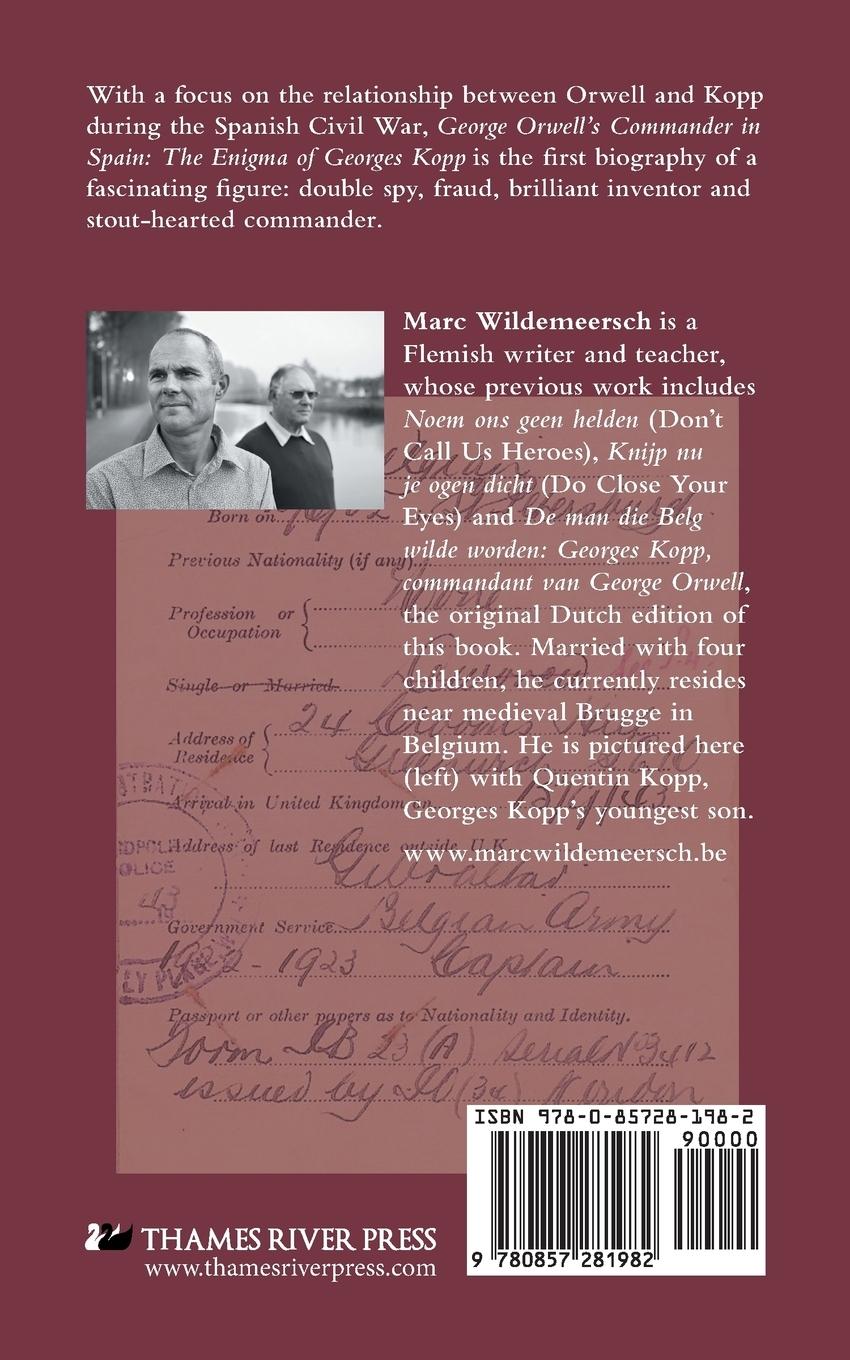 With a focus on the relationship between Orwell and Kopp
during the Spanish Civil War, George Orwell's Commander in
Spain: The Enigma of Georges Kopp is the first biography of a
fascinating figure: double spy, fraud, brilliant inventor and
stout-hearted commander.
Marc Wildemeersch is a
Flemish writer and teacher,
whose previous work includes
Noem ons geen helden (Don't
Call Us Heroes), Knijp nu
je ogen dicht (Do Close Your
Eyes) and De man die Belg
wilde worden: Georges Kopp,
commandant van George Orwell,
the original Dutch edition of
this book. Married with four
children, he currently resides
near medieval Brugge in
Belgium. He is pictured here
(left) with Quentin Kopp,
Georges Kopp's youngest son.
www.marcwildemeersch.be
Born on
Previous Nationality (if any)
Profession or
Occupation
Single or Married.
24
Address of
Residence
Arrival in United Kingdom on
Address of last Residence outside U.K.
Gibraltar
Government Service. Belgian Army
1922 - 1923 Captain
Passport or other papers as to Nationality and Identity.
Form IB 23 (A) Serial No 3412
issued by
ISBN 978-0-85728-198-2
90000
9 780857 281982
THAMES RIVER PRESS
www.thamesriverpress.com